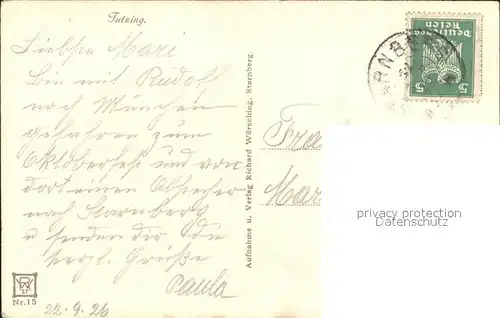 Tutzing.
Liebste Mari
Bin mit Rudolf
nach München
gefahren zum
Oktoberfest und von
dort einen Abstecher
nach Starnberg
u senden dir die
herzl. Grüße
Paula
22.9.26
Nr. 15
Aufnahme u. Verlag Richard Wörsching, Starnberg.
Deutsches
Reich
5 5
RNBE
privacy protection
Datenschutz